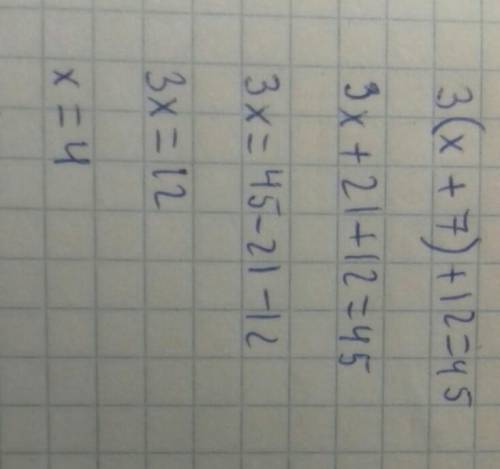 3(x + 7)+12=45
3x + 21+12=45
3x = 45-21-12
3x = 12
x = 4